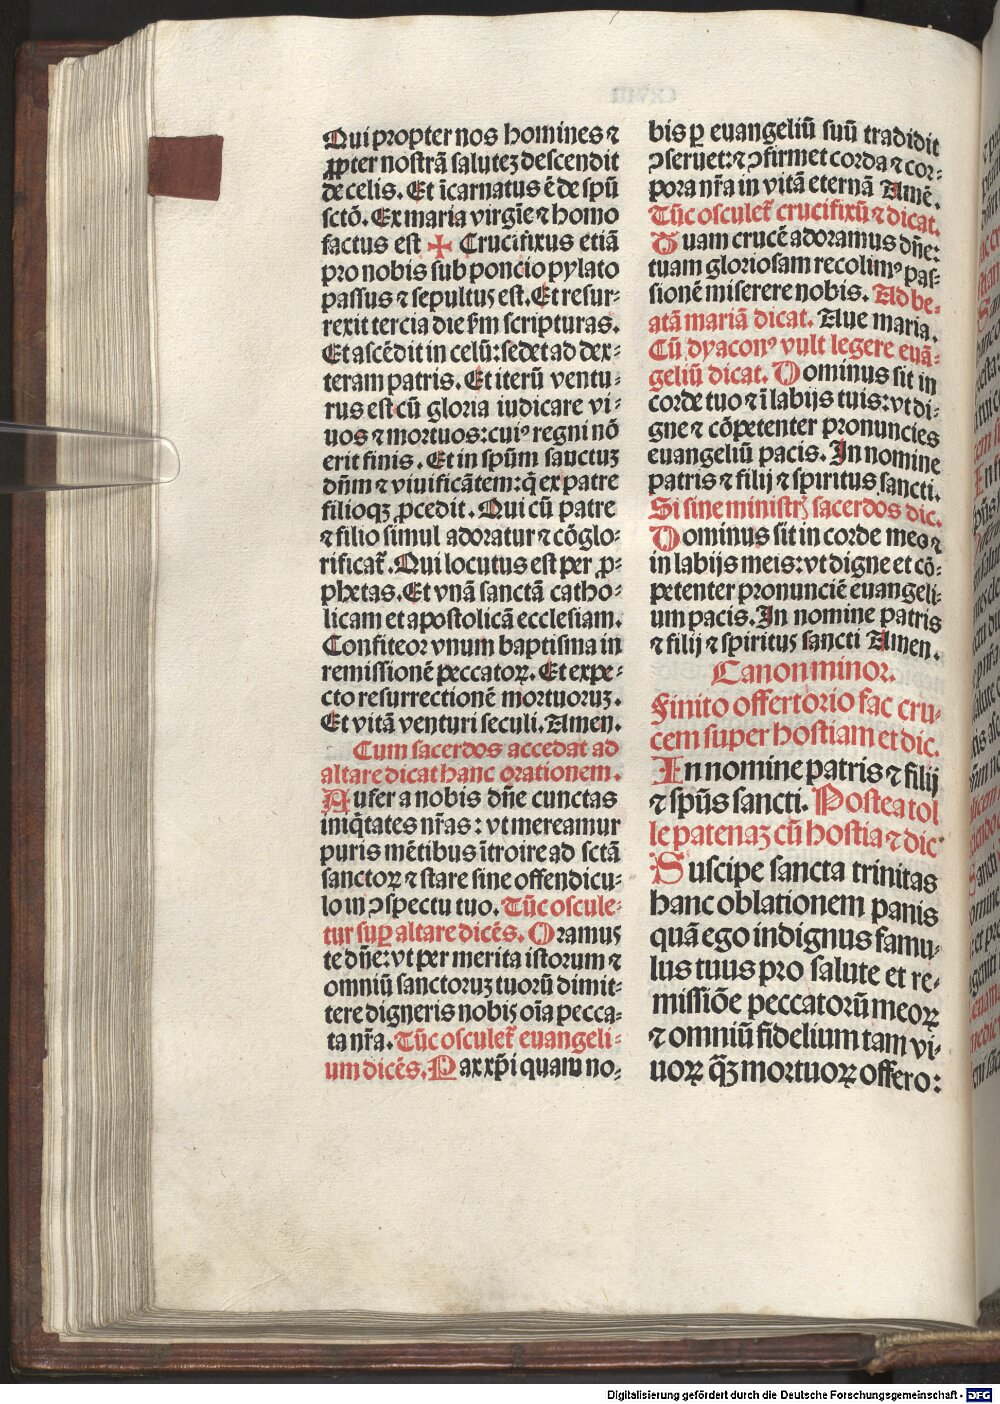 Qui propter nos homines ⁊
ꝓpter nostrã salutez descendit
de celis. Et ĩcarnatus ẽ de spũ
sctõ. Ex maria virgĩe ⁊ homo
factus est ✠ Crucifixus etiã
pro nobis sub poncio pylato
passus ⁊ sepultus est. Et resur⸗
rexit tercia die ẜm scripturas.
Et ascẽdit in celũ: sedet ad dex⸗
teram patris. Et iterũ ventu⸗
rus est cũ gloria iudicare vi⸗
uos ⁊ mortuos: cuiꝰ regni nõ
erit finis. Et in spũm sanctuz
dñm ⁊ viuificãtem: q̃ ex patre
filioqz ꝓcedit. Qui cũ patre
⁊ filio simul adoratur ⁊ cõglo⸗
rificat᷑. Qui locutus est per ꝓ⸗
phetas. Et vnã sanctã catho⸗
licam et apostolicã ecclesiam.
Confiteor vnum baptisma in
remissionẽ peccatoꝝ. Et expe⸗
cto resurrectionẽ mortuoruz.
Et vitã venturi seculi. Amen.
Cum sacerdos accedat ad
altare dicat hanc orationem.
Aufer a nobis dñe cunctas
iniq̃tates nr̃as: vt mereamur
puris mẽtibus ĩtroire ad sctã
sanctoꝝ ⁊ stare sine offendicu⸗
lo in ꝯspectu tuo. Tũc oscule⸗
tur suꝑ altare dicẽs. Oramus
te dñe: vt per merita istorum ⁊
omniũ sanctoruz tuorũ dimit⸗
tere digneris nobis oĩa pecca⸗
ta nr̃a. Tũc osculet᷑ euangeli⸗
um dicẽs. Pax xp̃i quam no⸗
CXVIII
bis ꝑ euangeliũ suũ tradidit
ꝯseruet: ⁊ ꝯfirmet corda ⁊ cor⸗
pora nr̃a in vitã eternã Amẽ.
Tũc osculet᷑ crucifixũ ⁊ dicat.
Tuam crucẽ adoramus dñe:
tuam gloriosam recolimꝰ pas⸗
sionẽ miserere nobis. Ad be⸗
atã mariã dicat. Aue maria.
Cũ dyaconꝰ vult legere euã⸗
geliũ dicat. Dominus sit in
corde tuo ⁊ ĩ labijs tuis: vt di⸗
gne ⁊ cõpetenter pronuncies
euangeliũ pacis. In nomine
patris ⁊ filij ⁊ spiritus sancti.
Si sine ministrꝭ sacerdos dic.
Dominus sit in corde meo ⁊
in labijs meis: vt digne et cõ⸗
petenter pronunciẽ euangeli⸗
um pacis. In nomine patris
⁊ filij ⁊ spiritus sancti Amen.
Canon minor.
Finito offertorio fac cru⸗
cem super hostiam et dic.
In nomine patris ⁊ filij
⁊ spũs sancti. Postea tol
le patenaz cũ hostia ⁊ dic
Suscipe sancta trinitas
hanc oblationem panis
quã ego indignus famu⸗
lus tuus pro salute et re⸗
missiõe peccatorũ meoꝝ
⁊ omniũ fidelium tam vi⸗
uoꝝ q̃z mortuoꝝ offero:
Digitalisierung gefördert durch die Deutsche Forschungsgemeinschaft - DFG